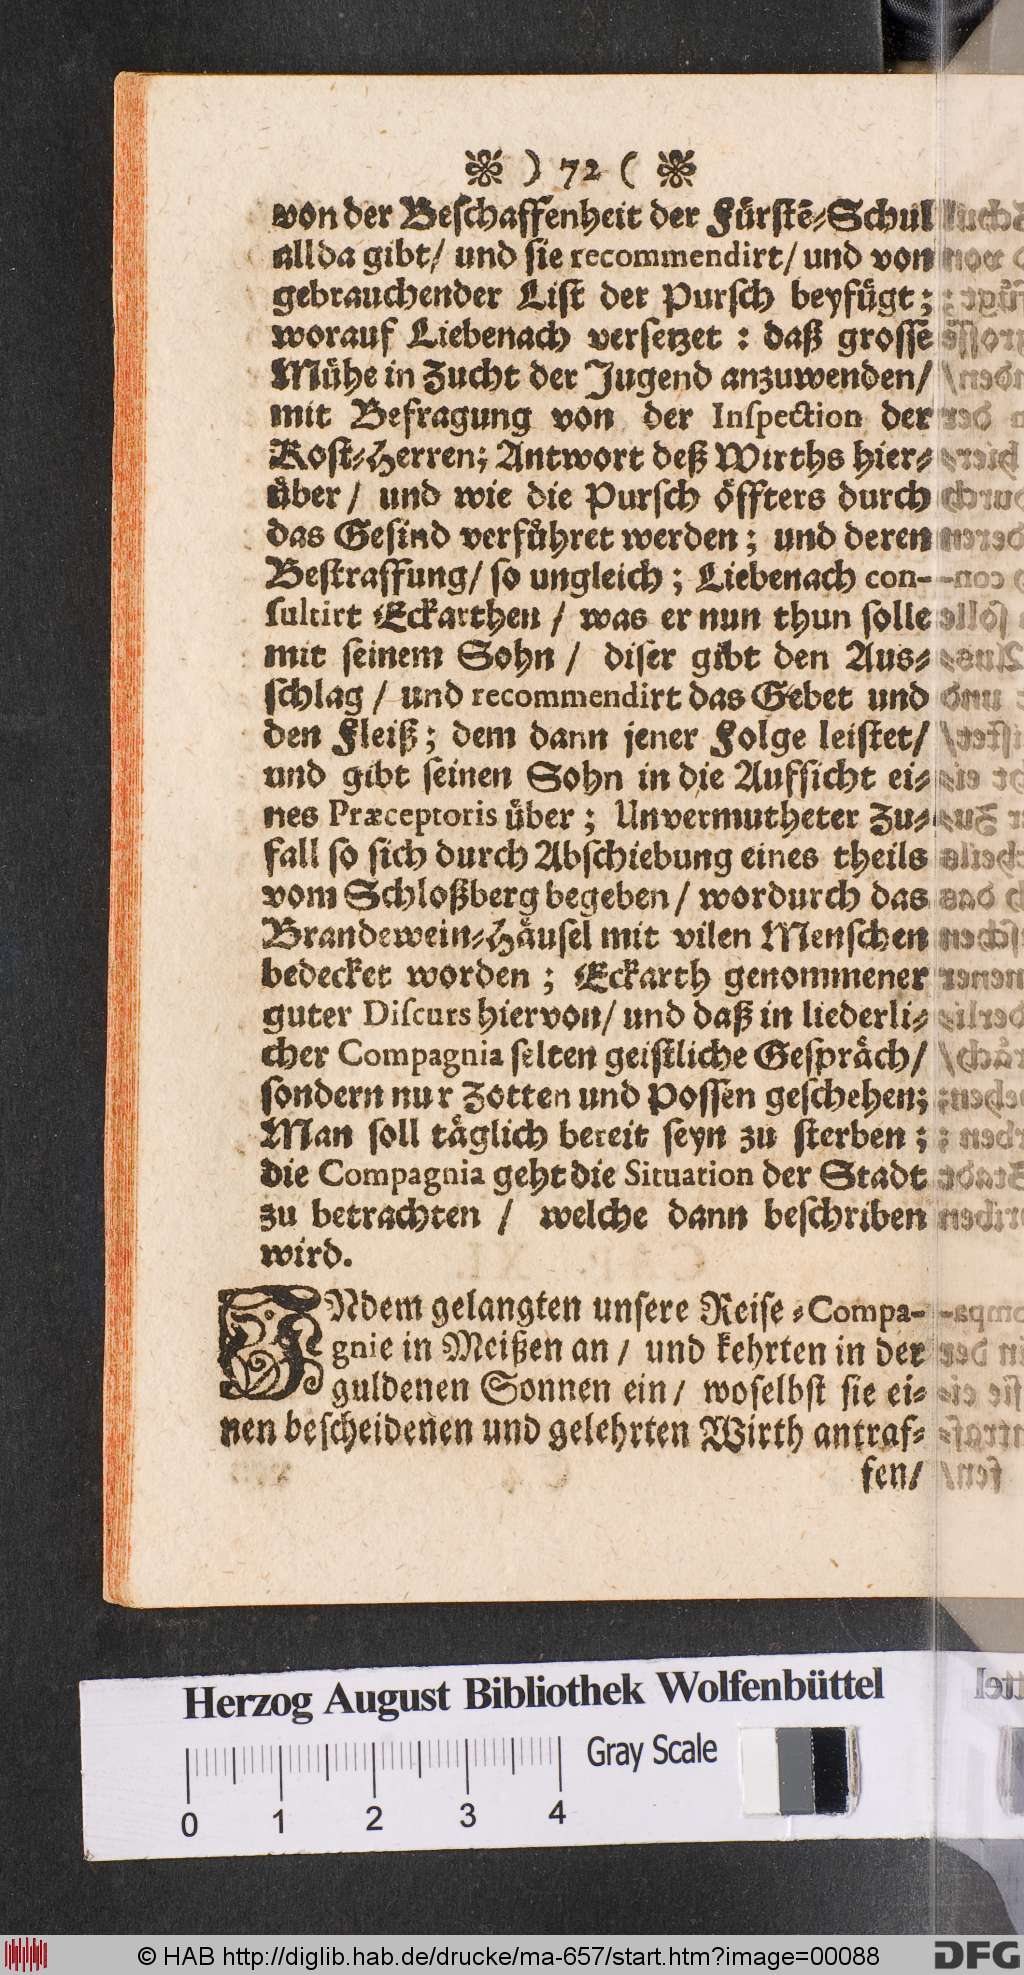 ❀ ) 72 ( ❀
von der Beschaffenheit der Fürstẽ-Schul
allda gibt/ und sie recommendirt/ und von
gebrauchender List der Pursch beyfügt;
worauf Liebenach versetzet : daß grosse
Mühe in Zucht der Jugend anzuwenden/
mit Befragung von der Inspection der
Kost-Herren; Antwort deß Wirths hier-
über / und wie die Pursch öffters durch
das Gesind verführet werden; und deren
Bestraffung/ so ungleich; Liebenach con-
sultirt Eckarthen / was er nun thun solle
mit seinem Sohn / diser gibt den Aus-
schlag / und recommendirt das Gebet und
den Fleiß; dem dann jener Folge leistet/
und gibt seinen Sohn in die Aufsicht ei-
nes Præceptoris über; Unvermutheter Zu-
fall so sich durch Abschiebung eines theils
vom Schloßberg begeben / wordurch das
Brandewein-Häusel mit vilen Menschen
bedecket worden ; Eckarth genommener
guter Discurs hiervon/ und daß in liederli-
cher Compagnia selten geistliche Gespräch/
sondern nur Zotten und Possen geschehen;
Man soll täglich bereit seyn zu sterben ;
die Compagnia geht die Situation der Stadt
zu betrachten / welche dann beschriben
wird.
INdem gelangten unsere Reise-Compa-
gnie in Meißen an / und kehrten in der
guldenen Sonnen ein / woselbst sie ei-
nen bescheidenen und gelehrten Wirth antraf-
fen/
Herzog August Bibliothek Wolfenbüttel
Gray Scale
0 1 2 3 4
© HAB http://diglib.hab.de/drucke/ma-657/start.htm?image=00088
DFG